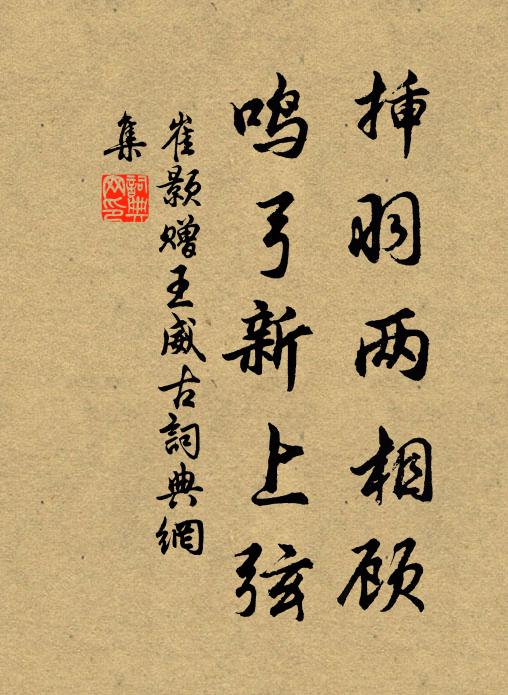 插羽两相顾
鸣弓新上弦
崔颢赠王威古詞典網
集
詞典
网印